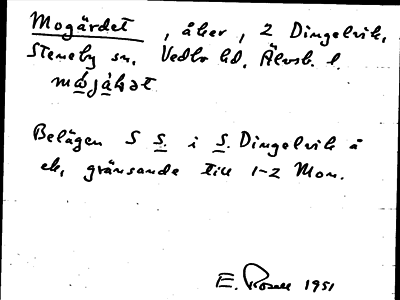 Mogärdet, åker, 2 Dingelvik,
Steneby sn, Vedbo hd, Älvsb. l.
Belägen S S. i S. Dingelvik å
ek, gränsande till 1-2 Mon.
E. Rosell 1951